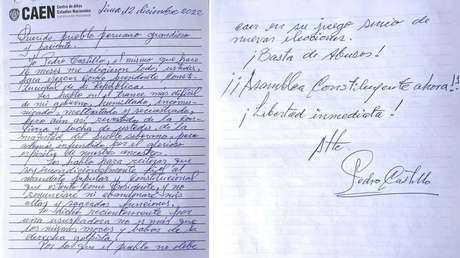 CAEN Centro de Altos
Estudios Nacionales
Lima, 12 diciembre 2022
Querido pueblo peruano grandioso
y paciente.
Yo Pedro Castillo, el mismo que hace
16 meses me eligieron todos ustedes,
para ejercer como presidente consti-
tucional de la República.
Les hablo en el trance más difícil
de mi gobierno, humillado, incomu-
nicado, maltratado y secuestrado,
pero aún así, revestido de la con-
fianza y lucha de ustedes, de la
majestad del pueblo soberano, pero
además infundido por el glorioso
espíritu de nuestros ancestros.
Les hablo para reiterar que
soy incondicionalmente fiel al
mandato popular y constitucional
que ostento como presidente, y no
renunciaré ni abandonaré mis
altas y sagradas funciones.
Lo dicho recientemente por
una usurpadora no es más que
los mismos mocos y babas de
la derecha golpista.
Por lo que el pueblo no debe
caer en su juego sucio de
nuevas elecciones.
¡Basta de Abusos!
¡¡Asamblea Constituyente ahora!!
¡Libertad inmediata!
Atte
Pedro Castillo